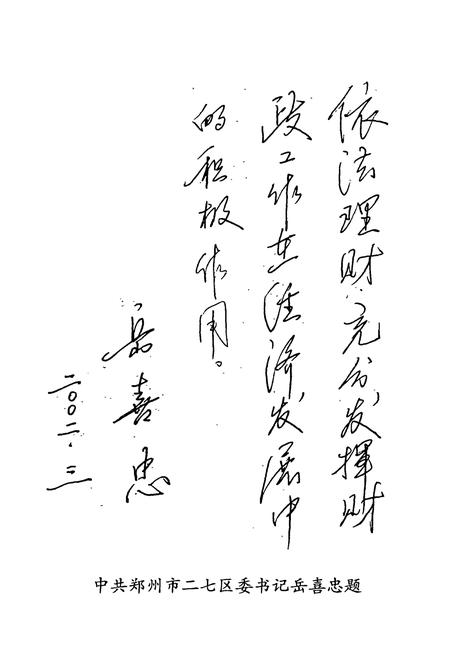 依法理财充分发挥财
政工作在经济发展中
的积极作用。
岳喜忠
二〇〇二.三
中共郑州市二七区委书记岳喜忠题